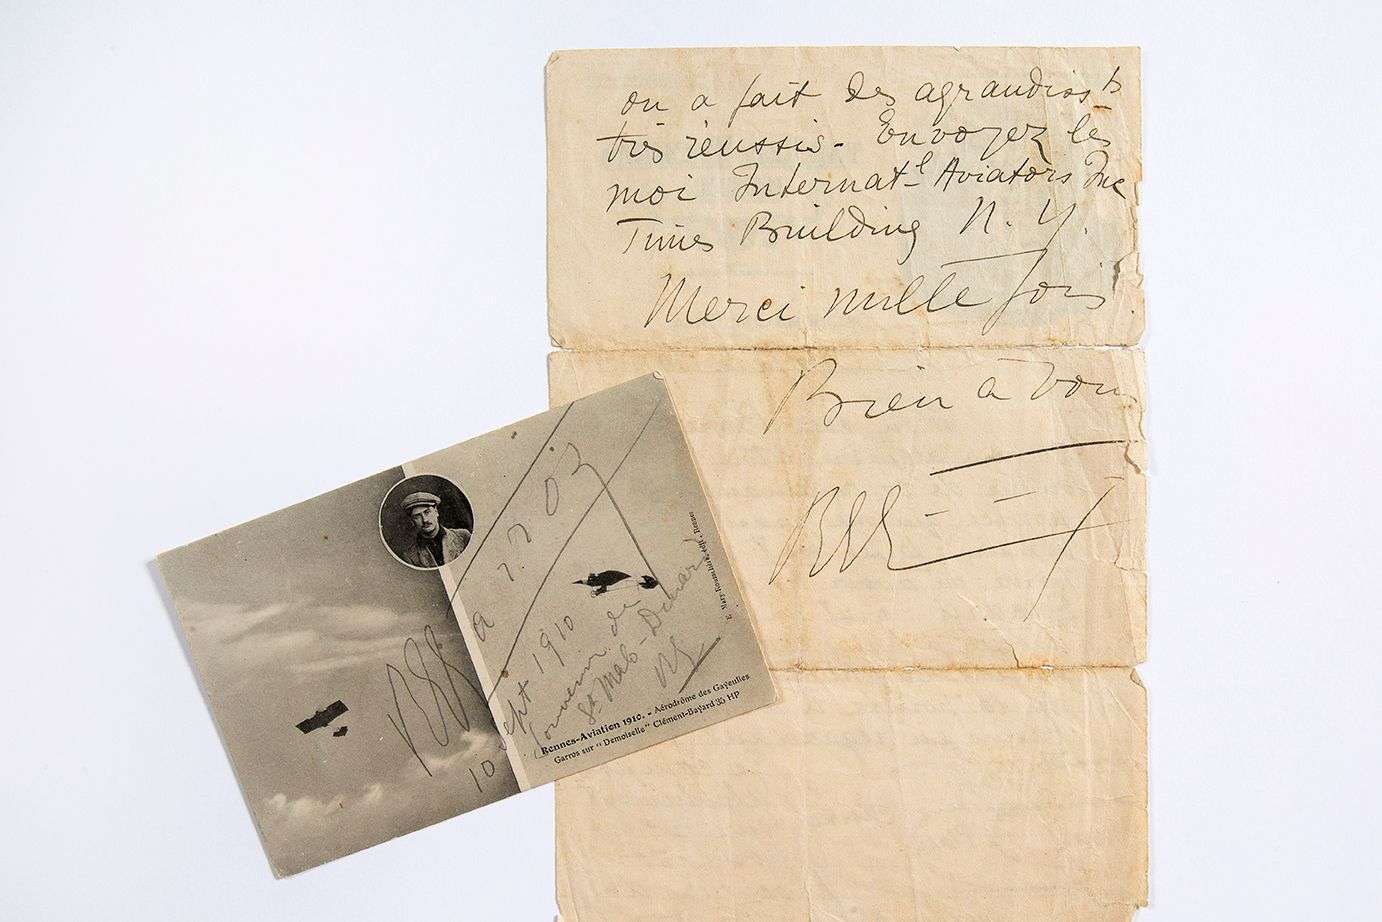 on a fait des agrandiss ts
très réussis - Envoyez les
moi Internat l Aviators Inc
Times Building N. Y.
Merci mille fois
Bien à vous
10 sept 1910
Souvenir de
St Malo-Dinard
RG
E. Mary-Rousselière, édit., Rennes
Rennes-Aviation 1910. - Aérodrome des Gayeulles
Garros sur "Demoiselle" Clément-Bayard 35 HP